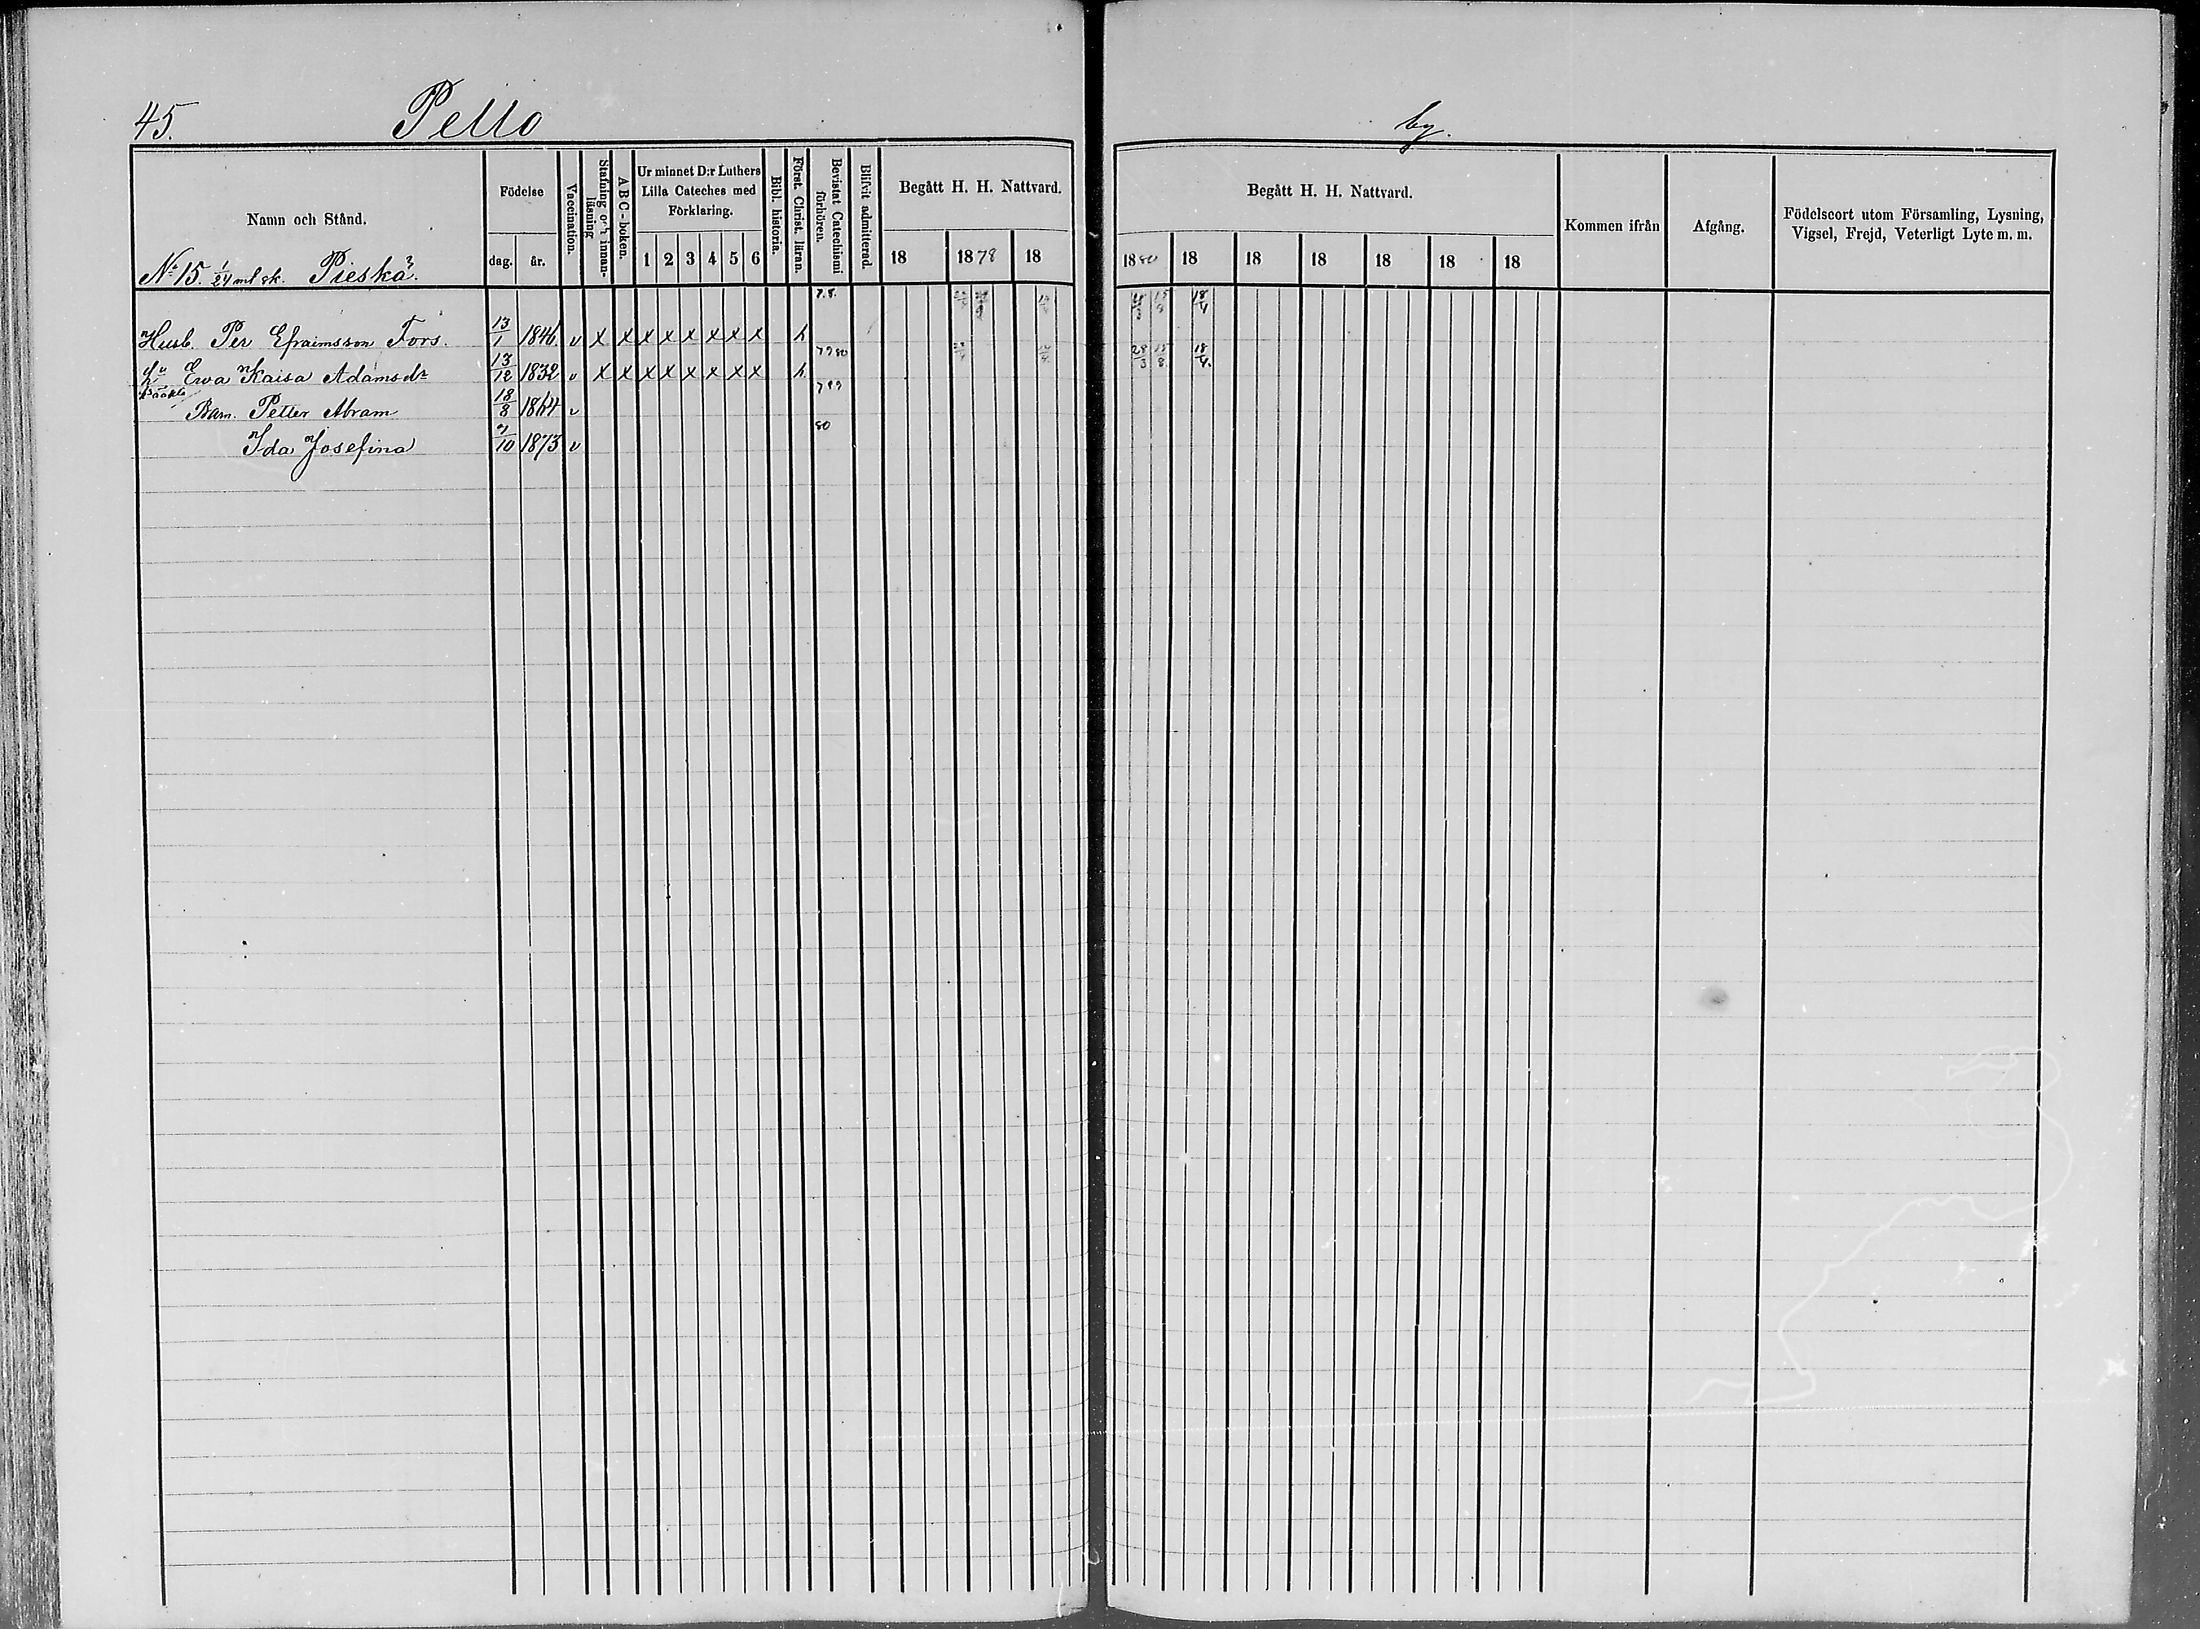 45. Pello by.
Namn och Stånd.
Födelse
dag. år.
Vaccination.
Stafning och innan-läsning
ABC-boken.
Ur minnet D:r Luthers Lilla Cateches med Förklaring.
1 2 3 4 5 6
Bibl. historia.
Först. Christ. läran.
Bevistat Catechismi förhören.
Blifvit admitterad.
Begått H. H. Nattvard.
18 1878 18
Begått H. H. Nattvard.
1880 18 18 18 18 18 18
Kommen ifrån
Afgång.
Födelseort utom Församling, Lysning, Vigsel, Frejd, Veterligt Lyte m. m.
No 15. 1/24 mtl sk. Pieskä.
Husb. Per Efraimsson Fors. 13/1 1846 v x x x x x x x x 18/4
Ewa Kaisa Adamsdr 13/12 1832 v x x x x x x x x 7980 28/3 15/8 18/4.
Barn. Petter Abram 18/8 1864 v
Ida Josefina 7/10 1873 v 80